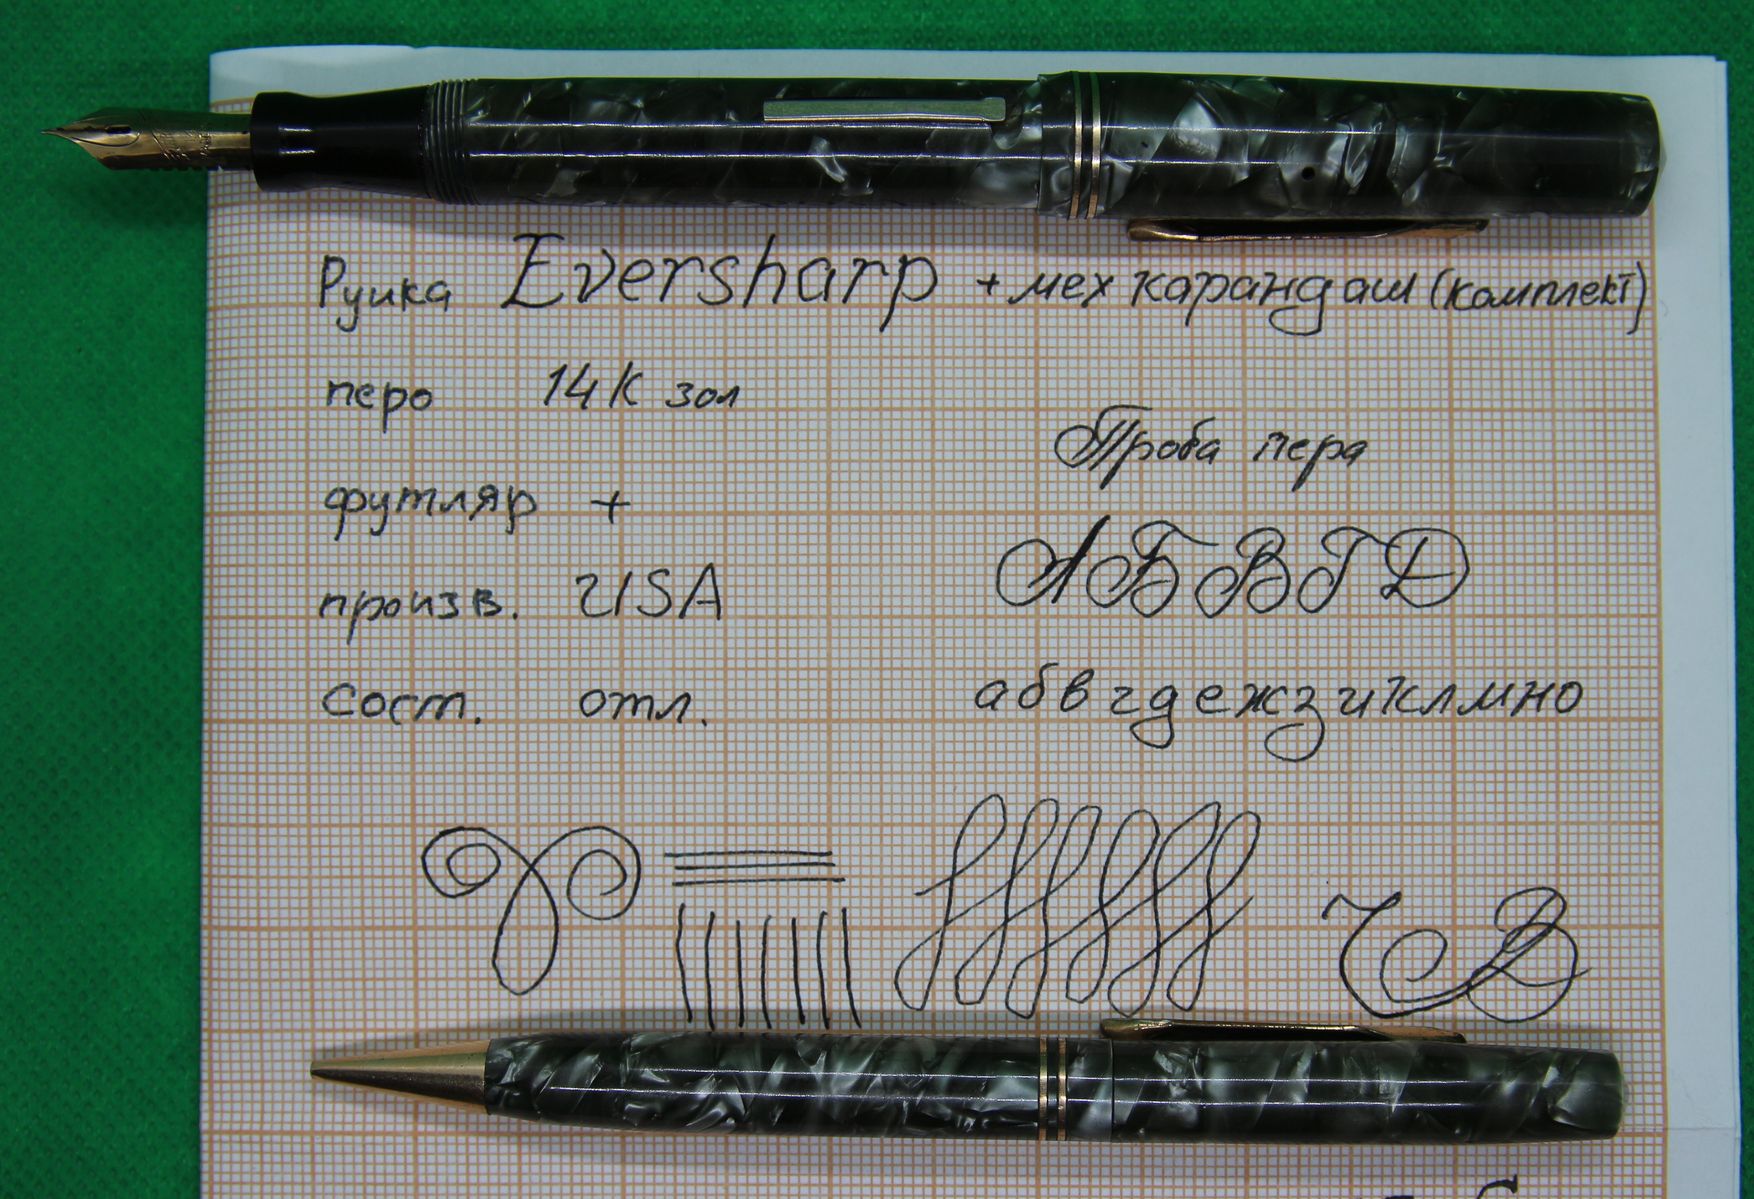 Ручка Eversharp + мех карандаш (комплект)
перо 14К зол
Проба пера
футляр +
АБВГД
произв. USA
сост. отл.
абвгдежзиклмно
ЧВ